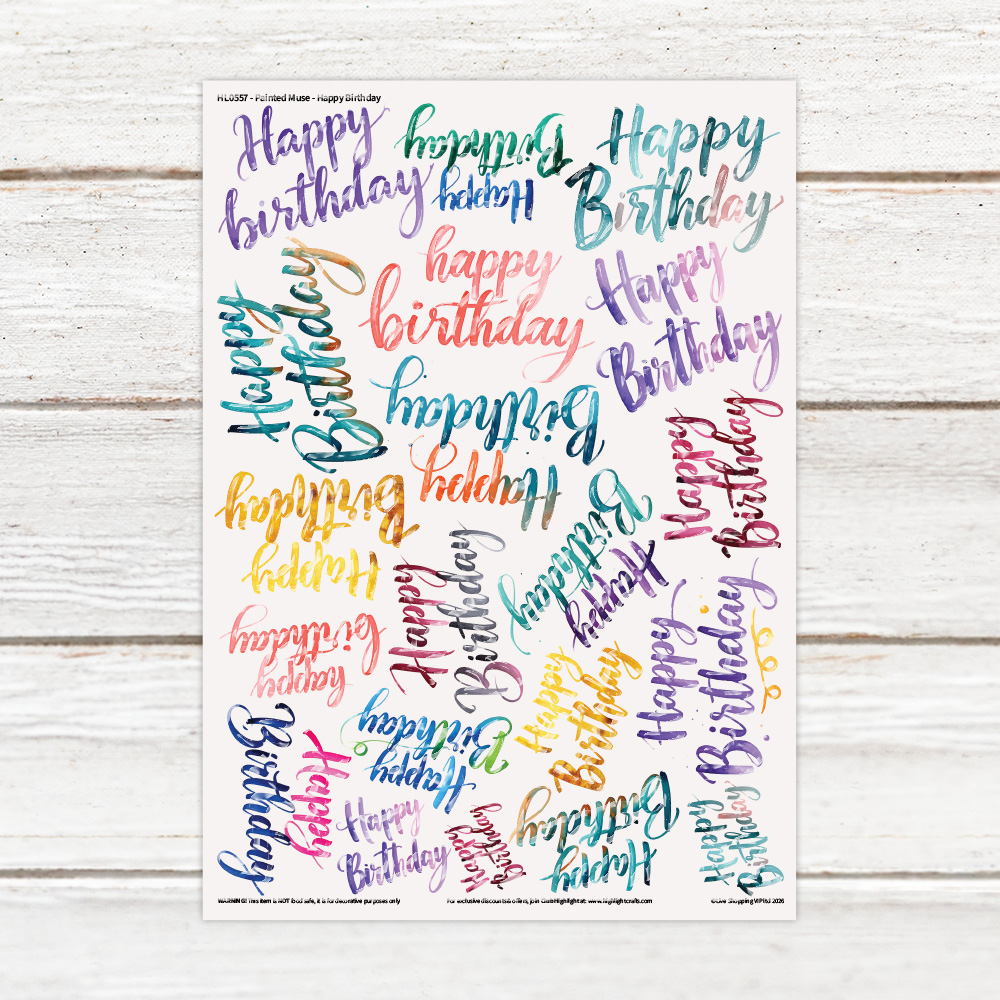 HL0557 - Painted Muse - Happy Birthday
Happy
birthday
Happy
Birthday
Happy
Birthday
happy
birthday
Happy
Birthday
Happy
Birthday
Happy
Birthday
Happy
Birthday
Happy
Birthday
Happy
Birthday
Happy
Birthday
happy
birthday
Happy
Birthday
Happy
Birthday
Happy
Birthday
Happy
Birthday
Happy
Birthday
Happy
Birthday
Happy
Birthday
Happy
Birthday
WARNING! This item is NOT food safe, it is for decorative purposes only
For exclusive discounts & offers, join Club Highlight at: www.highlightcrafts.com
©Live Shopping VIP ltd 2026